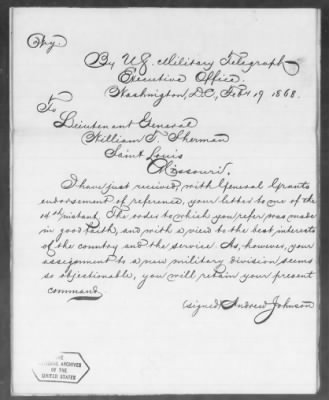 Copy.
By U.S. Military Telegraph
Executive Office.
Washington, D.C., Feb'y 19 1868.
To
Lieutenant General
William T. Sherman
Saint Louis
Missouri.
I have just received, with General Grants
endorsement of reference, your letter to me of the
14th instant. The order to which you refer was made
in good faith, and with a view to the best interests
of the country and the service. As, however, your
assignment to a new military division seems
so objectionable, you will retain your present
command.
(signed) Andrew Johnson
THE
NATIONAL ARCHIVES
OF THE
UNITED STATES